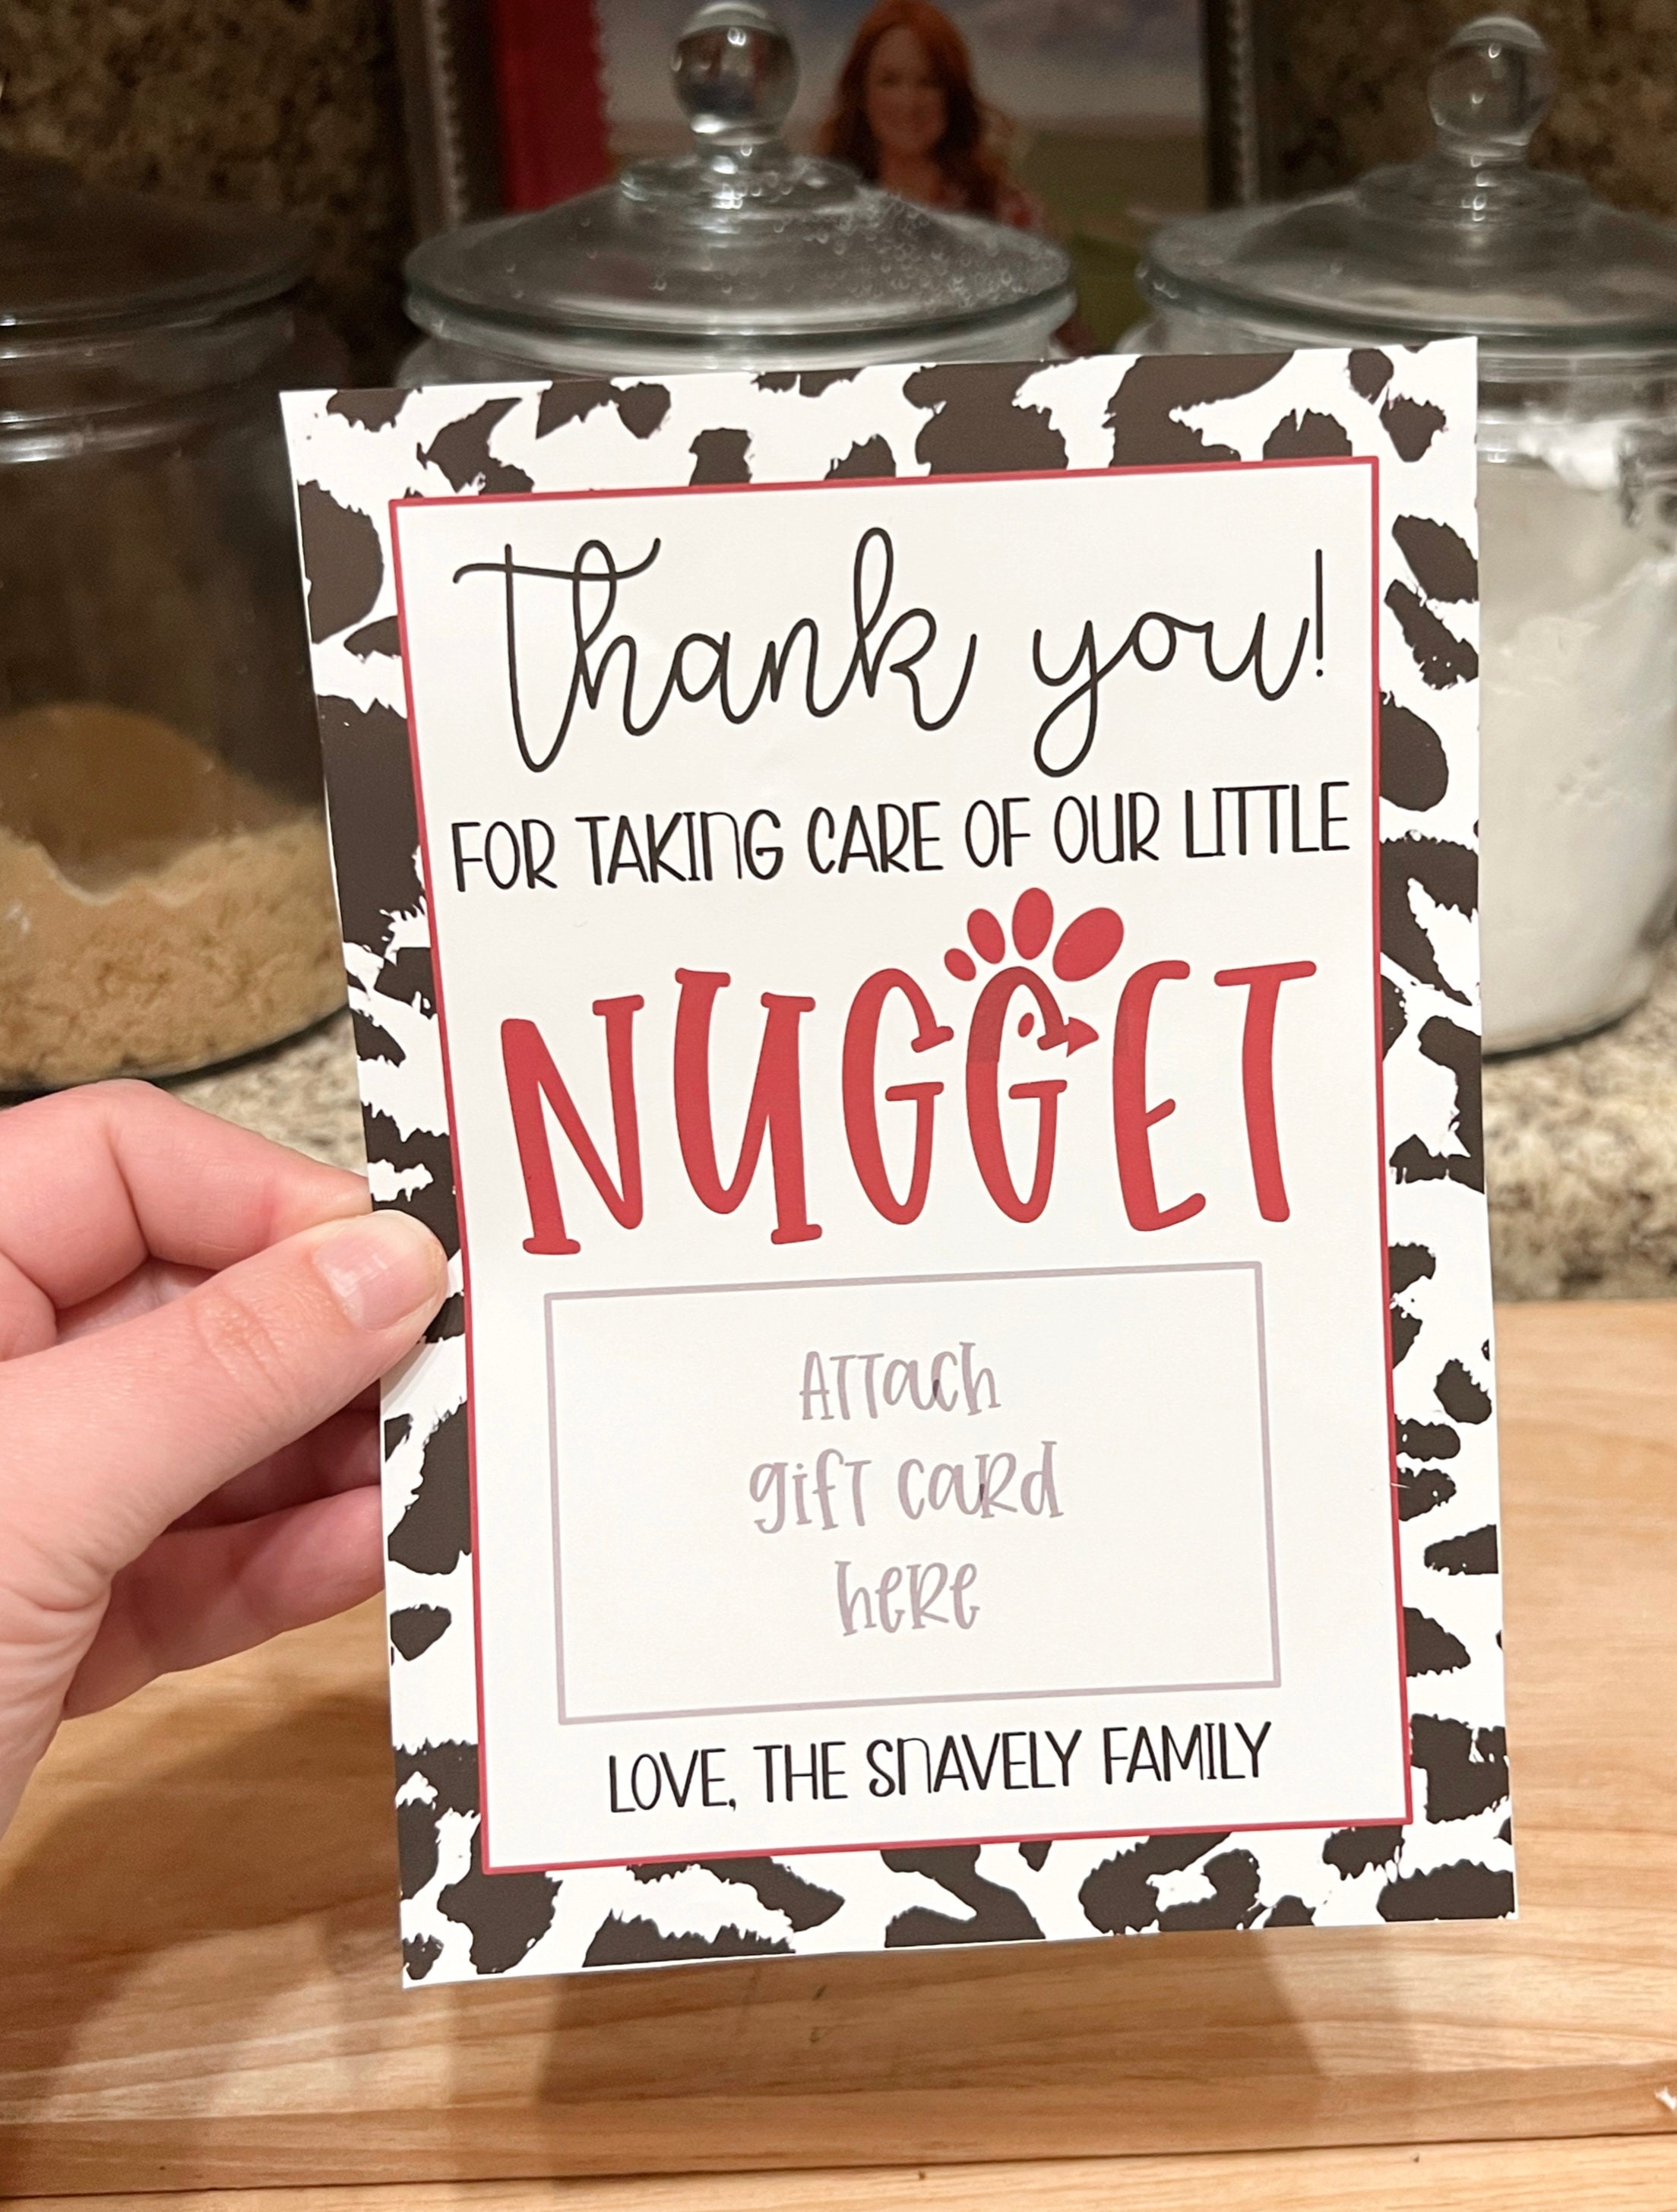 Thank you!
FOR TAKING CARE OF OUR LITTLE
NUGGET
ATTach
gift card
here
LOVE, THE SNAVELY FAMILY